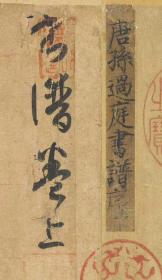 唐孫過庭書譜序
書譜卷上